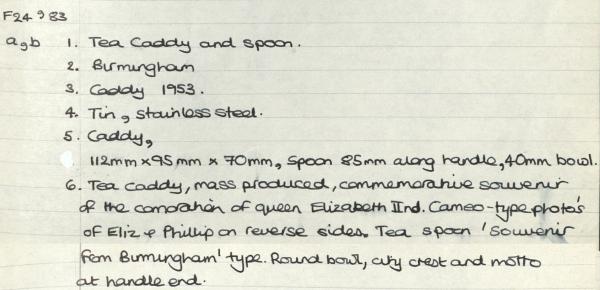 F24'83
a,b 1. Tea Caddy and spoon.
2. Birmingham
3. Caddy 1953.
4. Tin, stainless steel.
5. Caddy,
112mm x 95mm x 70mm, spoon 85mm along handle, 40mm bowl.
6. Tea Caddy, mass produced, commemorative souvenir
of the comoration of queen Elizabeth IInd. Cameo-type photo's
of Eliz & Phillip on reverse sides. Tea spoon 'Souvenir
fom Birmingham' type. Round bowl, city crest and motto
at handle end.